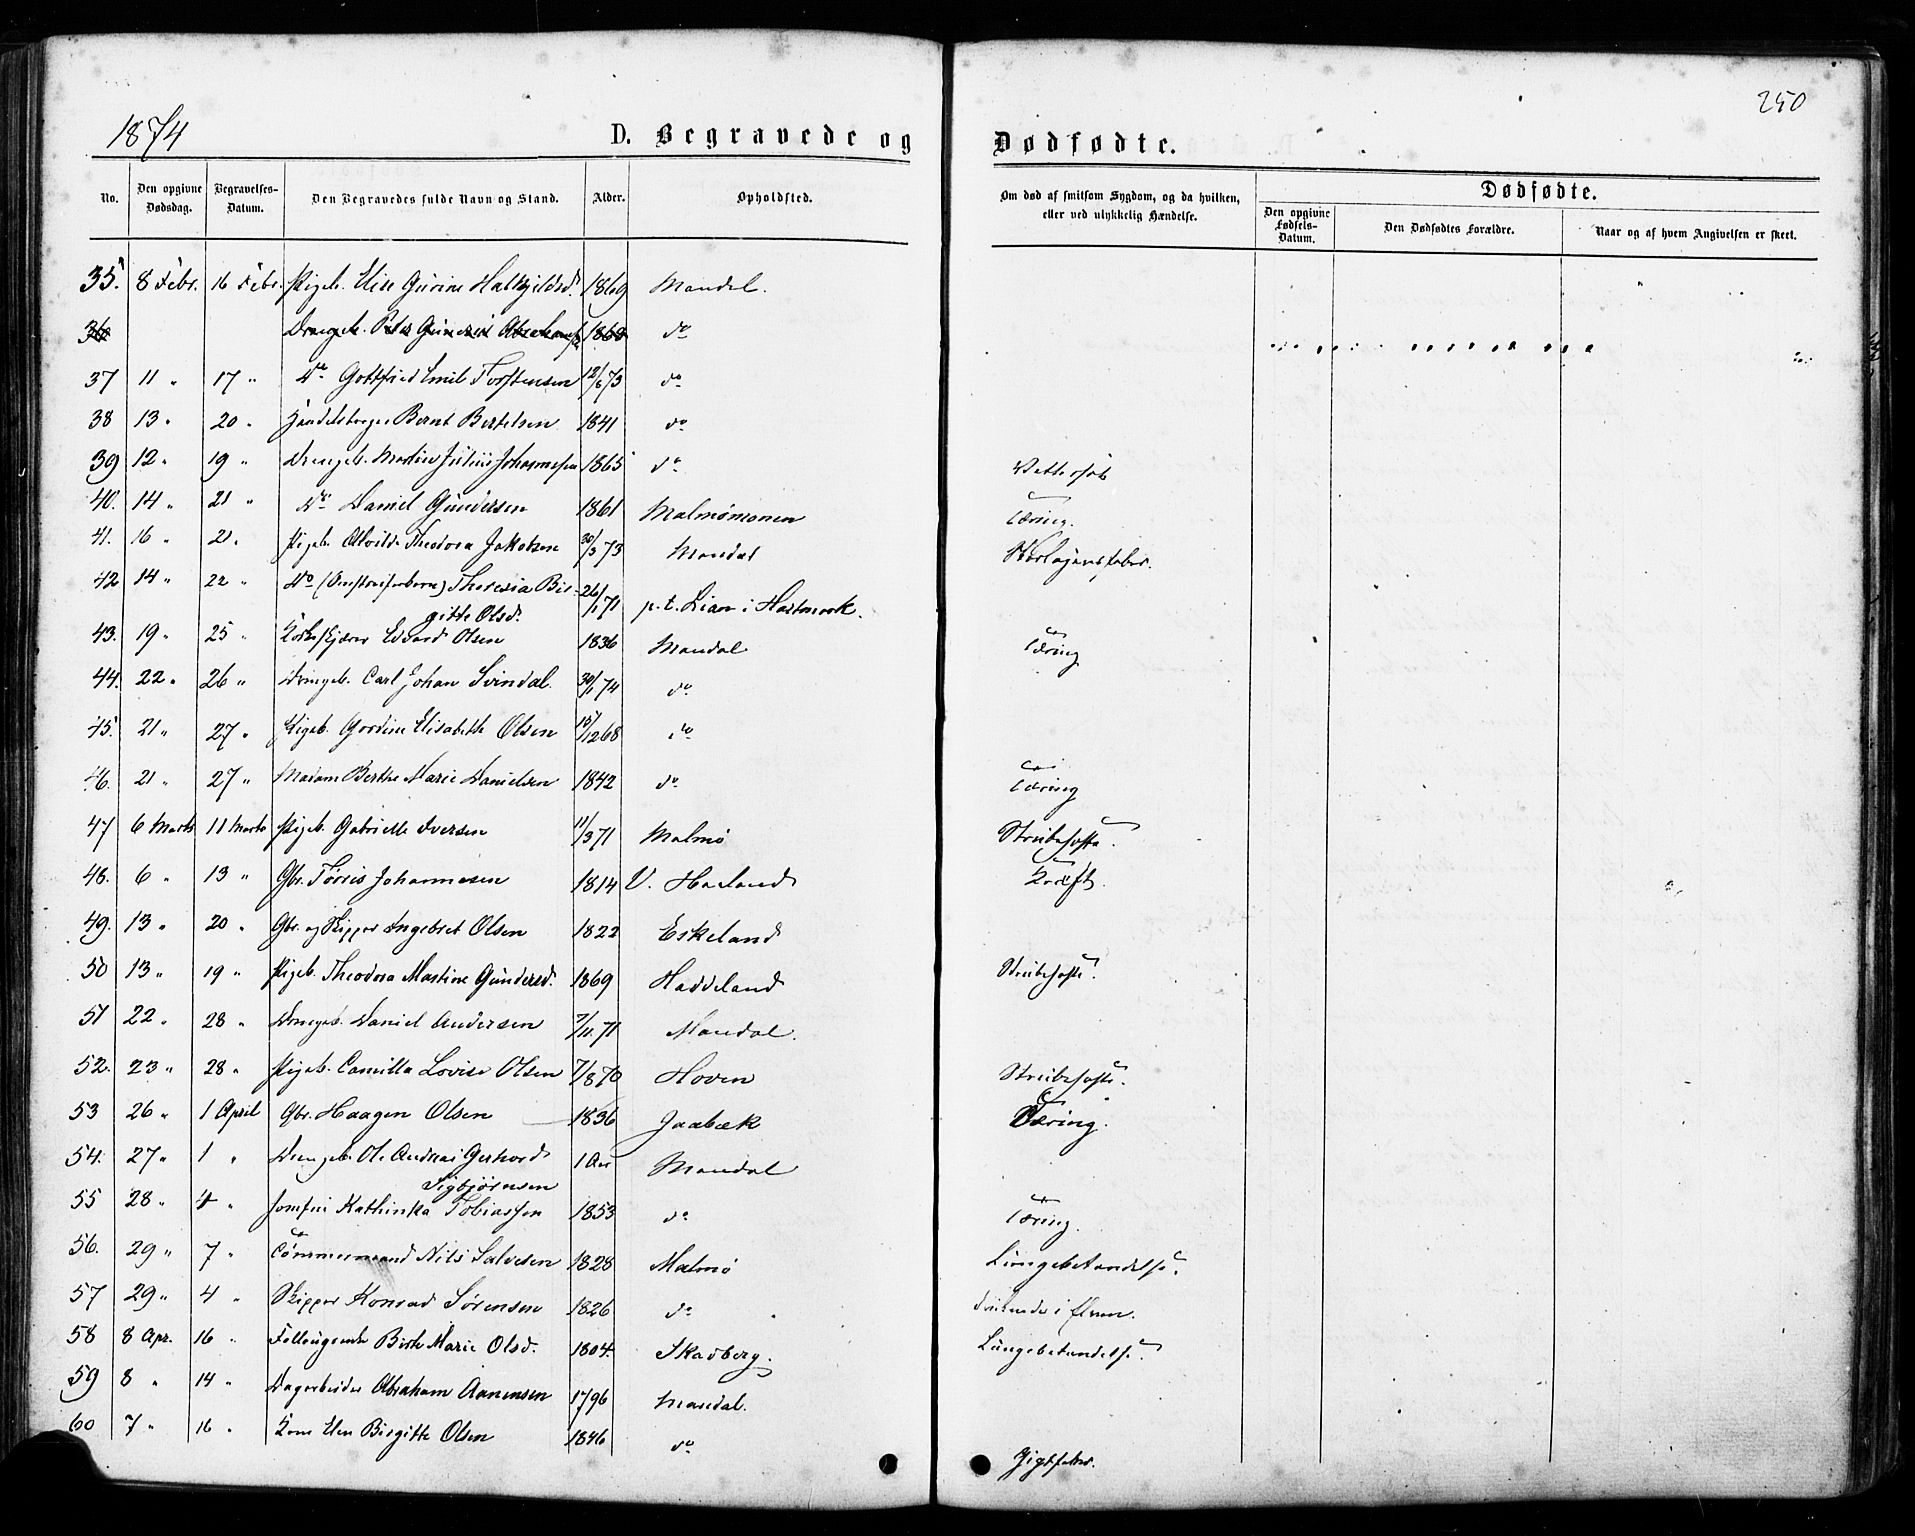 1874
250
D. Begravede og Dødfødte.
No. Den opgivne Dødsdag. Begravelses-Datum. Den Begravedes fulde Navn og Stand. Alder. Opholdsted. Om død af smitsom Sygdom, og da hvilken, eller ved ulykkelig Hændelse. Dødfødte.
Den opgivne Fødsels-Datum. Den Dødfødtes Forældre. Naar og af hvem Angivelsen er skeet.
35. 8 Febr. 16 Febr. Pigeb. Elise Gurine Halkjeldsd. 1869 Mandal.
36 Drengeb. Peder Gunerius Abrahams 1868 do
37 11 " 17 " do Gottfried Emil Torstensen 12/6 73 do
38 13 " 20 " Handelsborger Bernt Bertelsen 1841 do
39 12 " 19 " Drengeb. Martin Julius Johannesen 1865 do Vattersot
40. 14 " 21 " do Daniel Gundersen 1861 Malmømonen Tæring.
41. 16 " 21 " Pigeb. Alvilde Theodora Jakobsen 30/3 73 Mandal Skarlagensfeber.
42 14 " 22 " do (Omstreiferbarn) Theresia Bir-
gitte Olsd. 26/1 71 p. t. Lian i Hartmark.
43. 19 " 25 " Edvard Olsen 1836 Mandal Tæring
44. 22 " 26 " Drengeb. Carl Johan Svindal. 30/1 74 do
45. 21 " 27 " Pigeb. Gordine Elisabeth Olsen 15/12 68 do
46. 21 " 27 " Madam Berthe Marie Danielsen 1842 do Tæring
47 6 Marts 11 Marts Pigeb. Gabrielle Iversen 11/3 71 Malmø Strubehoste.
48. 6 " 13 " Gbr. Tørris Johannesen 1814 V. Haaland Kræft.
49. 13 " 20 " Gbr. og Skipper Ingebret Olsen 1822 Eskeland
50 13 " 19 " Pigeb. Theodora Martine Gundersd. 1869 Haddeland Strubehoste.
51 22 " 28 " Drengeb. Daniel Andersen 7/11 71 Mandal.
52. 23 " 28 " Pigeb. Camilla Lovise Olsen 7/8 70 Hoven Strubehoste.
53 26 " 1 April Gbr. Haagen Olsen 1836 Jaabæk Tæring.
54. 27 " 1 " Drengeb. Ole Andreas Gerhard
Sigbjørnsen 1 Aar Mandal
55 28 " 4 " Jomfru Kathinka Tobiassen 1853 do Tæring.
56. 29 " 7 " Tømmermand Nils Salvesen 1828 Malmø Lungebetændelse.
57 29 " 4 " Skipper Konrad Sørensen 1826 do Druknede i Elven.
58 8 Apr. 16 " Birthe Marie Olsd. 1804. Skadberg. Lungebetændelse.
59 8 " 14 " Dagarbeider Abraham Aanensen 1796 Mandal.
60 7 " 16 " Kone Elen Birgitte Olsen 1846 do Gigtfeber.